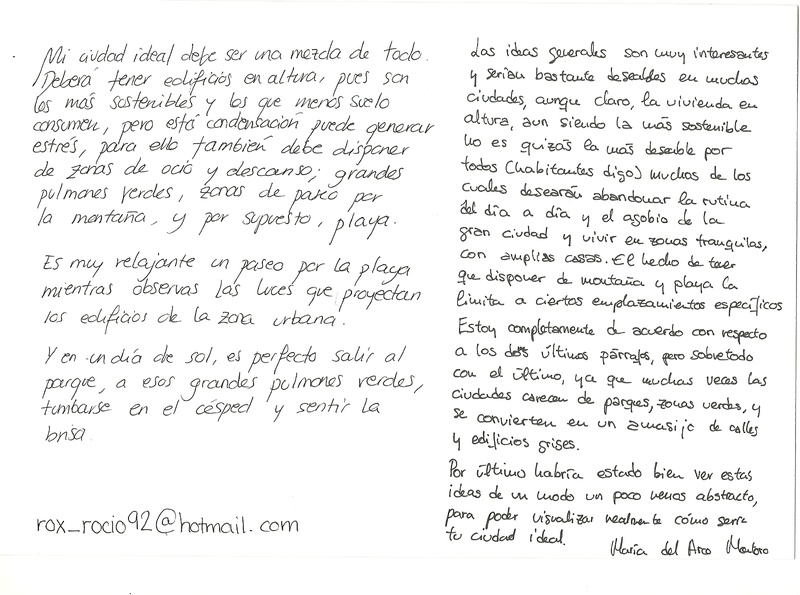 Mi ciudad ideal debe ser una mezcla de todo.
Deberá tener edificios en altura, pues son
los más sostenibles y los que menos suelo
consumen, pero está condensación puede generar
estrés, para ello también debe disponer
de zonas de ocio y descanso; grandes
pulmones verdes, zonas de paseo por
la montaña, y por supuesto, playa.
Es muy relajante un paseo por la playa
mientras observas las luces que proyectan
los edificios de la zona urbana.
Y en un día de sol, es perfecto salir al
parque, a esos grandes pulmones verdes,
tumbarse en el césped y sentir la
brisa.
rox_rocio92@hotmail.com
Las ideas generales son muy interesantes
y serían bastante deseables en muchas
ciudades, aunque claro, la vivienda en
altura, aun siendo la más sostenible
no es quizás la más deseable por
todos (habitantes digo) muchos de los
cuales desearán abandonar la rutina
del día a día y el agobio de la
gran ciudad y vivir en zonas tranquilas,
con amplias casas. El hecho de tener
que disponer de montaña y playa la
limita a ciertos emplazamientos específicos
Estoy completamente de acuerdo con respecto
a los dos últimos párrafos, pero sobretodo
con el último, ya que muchas veces las
ciudades carecen de parques, zonas verdes, y
se convierten en un amasijo de calles
y edificios grises.
Por último habría estado bien ver estas
ideas de un modo un poco menos abstracto,
para poder visualizar realmente cómo sería
tu ciudad ideal.
María del Arco Montoro